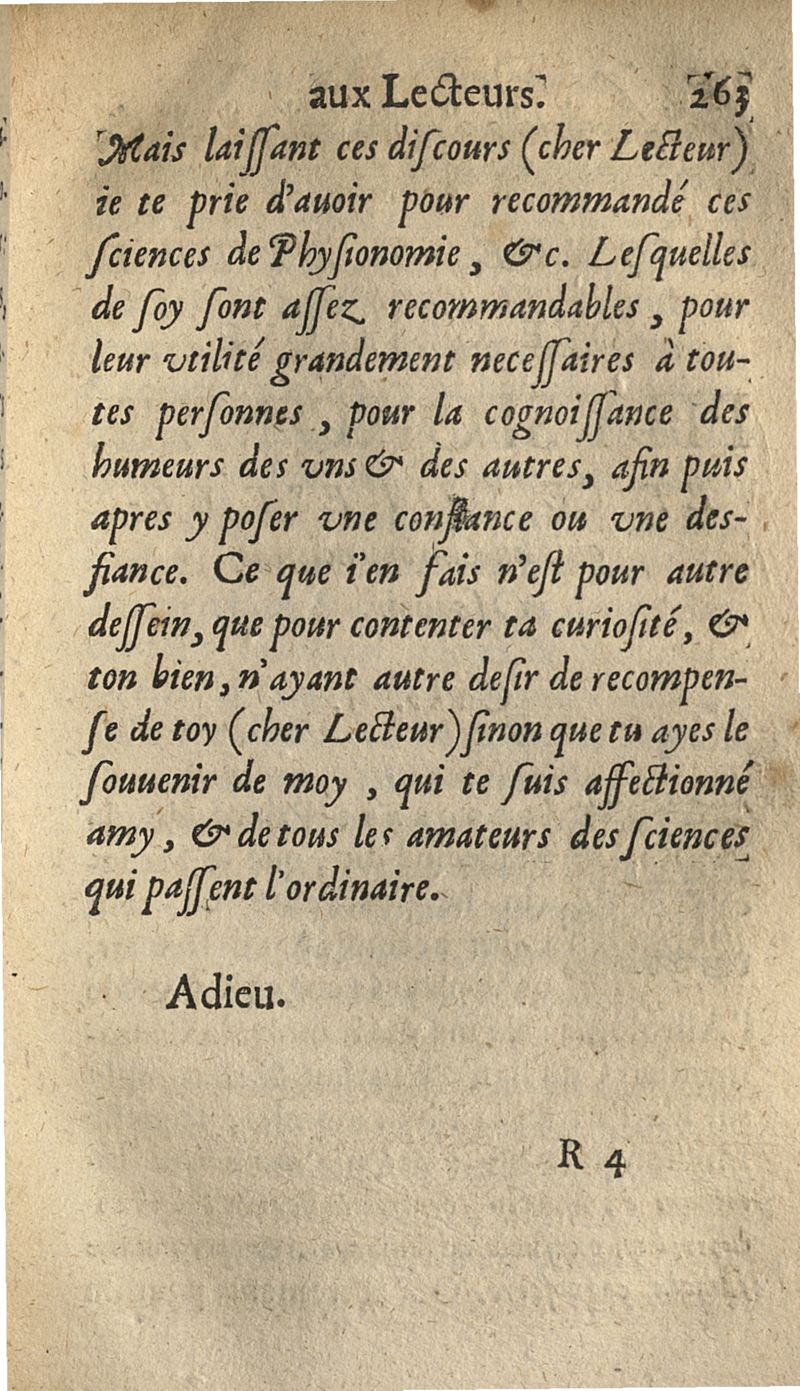 aux Lecteurs. 263
Mais laiſſant ces diſcours (cher Lecteur)
ie te prie d'auoir pour recommandé ces
ſciences de Phyſionomie, &c. Leſquelles
de ſoy ſont aſſez recommandables, pour
leur vtilité grandement neceſſaires à tou-
tes perſonnes, pour la cognoiſſance des
humeurs des vns & des autres, afin puis
apres y poſer vne confiance ou vne des-
fiance. Ce que i'en fais n'eſt pour autre
deſſein, que pour contenter ta curioſité, &
ton bien, n'ayant autre deſir de recompen-
ſe de toy (cher Lecteur) ſinon que tu ayes le
ſouuenir de moy, qui te ſuis affectionné
amy, & de tous les amateurs des ſciences
qui paſſent l'ordinaire.
Adieu.
R 4